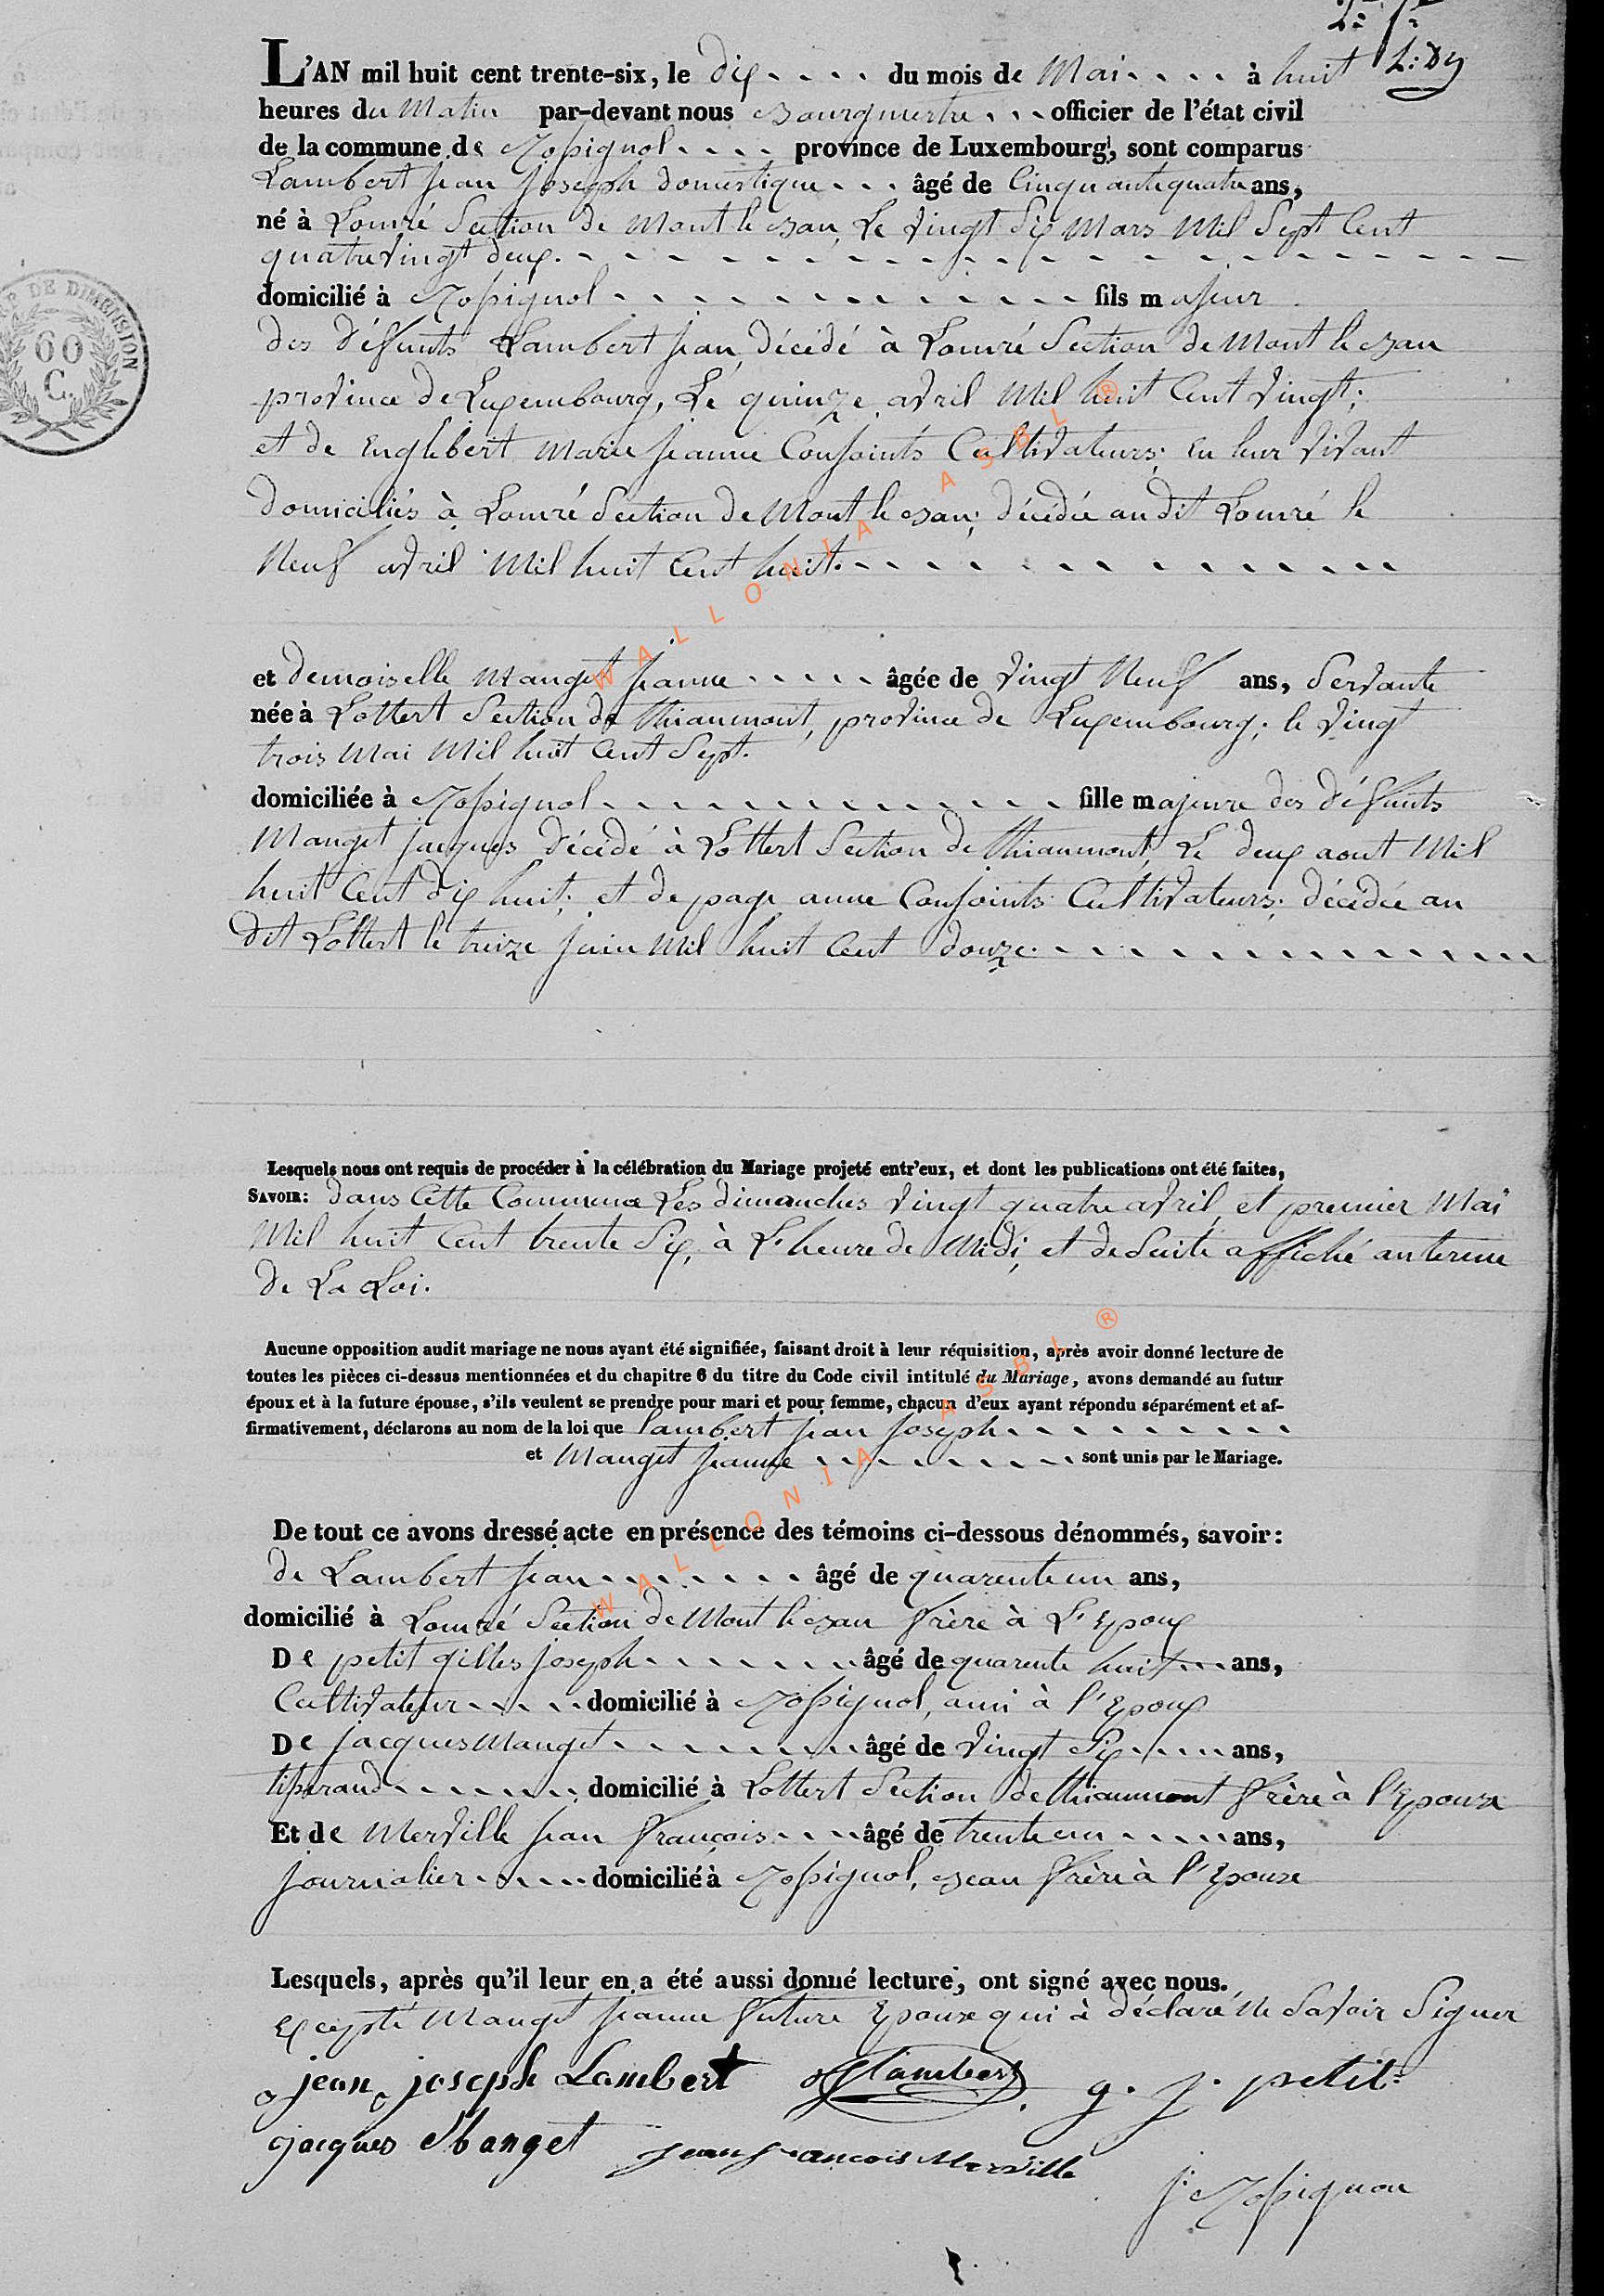 L: Dy
L'AN mil huit cent trente-six, le dix du mois de Mai à huit
heures du Matin par-devant nous Bourgmestre officier de l'état civil
de la commune de Rossignol province de Luxembourg, sont comparus
Lambert Jean Joseph domestique âgé de Cinquante quatre ans,
né à Lomré Section de Mont le Ban, Le vingt Six Mars Mil Sept Cent
quatre vingt deux.
domicilié à Rossignol fils majeur
des défunts Lambert Jean, décédé à Lomré Section de Mont le Ban
province de Luxembourg, Le quinze avril Mil huit Cent vingt;
et de Englebert Marie Jeanne Conjoints Cultivateurs; en leur vivant
domiciliés à Lomré Section de Mont le Ban; décédée au dit Lomré le
Neuf avril Mil huit Cent huit.
et demoiselle Manget Jeanne âgée de vingt Neuf ans, Servante
née à Lottert Section de thiaumont, province de Luxembourg; le vingt
trois Mai Mil huit Cent Sept.
domiciliée à Rossignol fille majeure des défunts
Manget Jacques décédé à Lottert Section de thiaumont, Le deux aout Mil
huit Cent dix huit; et de page anne Conjoints Cultivateurs; décédée au
dit Lottert le treize Juin Mil huit Cent douze.
Lesquels nous ont requis de procéder à la célébration du Mariage projeté entr'eux, et dont les publications ont été faites,
SAVOIR: dans Cette Commune Les dimanches vingt quatre avril, et premier Mai
Mil huit Cent trente Six, à L'heure de Midi, et de Suite affiché au terme
de La Loi.
Aucune opposition audit mariage ne nous ayant été signifiée, faisant droit à leur réquisition, après avoir donné lecture de
toutes les pièces ci-dessus mentionnées et du chapitre 6 du titre du Code civil intitulé du Mariage, avons demandé au futur
époux et à la future épouse, s'ils veulent se prendre pour mari et pour femme, chacun d'eux ayant répondu séparément et af-
firmativement, déclarons au nom de la loi que Lambert Jean Joseph
et Manget Jeanne sont unis par le Mariage.
De tout ce avons dressé acte en présence des témoins ci-dessous dénommés, savoir:
de Lambert Jean âgé de quarente un ans,
domicilié à Lomré Section de Mont le Ban frère à L'Epoux
De petit gilles Joseph âgé de quarente huit ans,
Cultivateur domicilié à Rossignol, ami à l'Epoux
De Jacques Manget âgé de vingt Six ans,
tisserand domicilié à Lottert Section de thiaumont frère à l'Epouse
Et de Merville Jean François âgé de trente un ans,
Journalier domicilié à Rossignol, Beau frère à l'Epouse
Lesquels, après qu'il leur en a été aussi donné lecture, ont signé avec nous.
Excepté Manget Jeanne future Epouse qui à déclaré Ne Savoir Signer
jean joseph Lambert J Lambert g. j. petit
jacques Manget Jean francois Merville
J: Rossignon
TIMBRE DE DIMENSION
60
C.
WALLONIA ASBL ®
WALLONIA ASBL ®